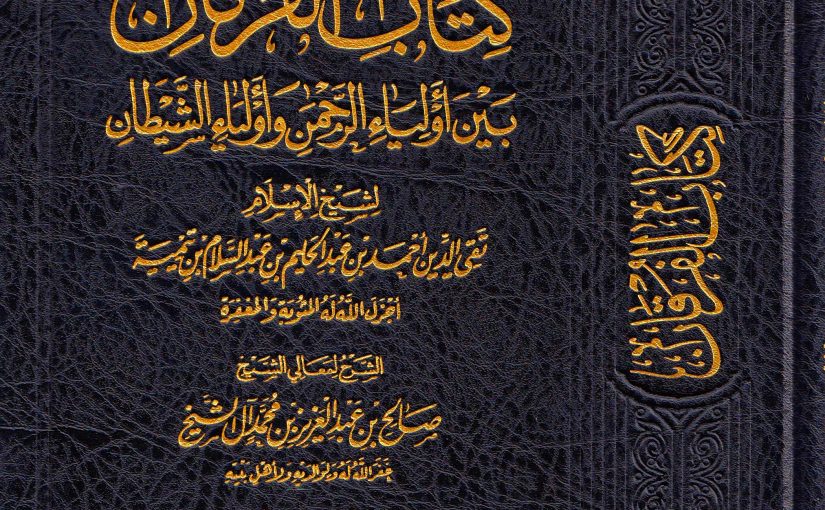 كتاب الفرقان
بَيْنَ أَوْلِيَاءِ الرَّحْمَنِ وَأَوْلِيَاءِ الشَّيْطَانِ
لِشَيْخِ الْإِسْلَامِ
تَقِيِّ الدِّينِ أَحْمَدَ بْنِ عَبْدِ الْحَلِيمِ بْنِ عَبْدِ السَّلَامِ بْنِ تَيْمِيَّةَ
أَجْزَلَ اللَّهُ لَهُ الْمَثُوبَةَ وَالْمَغْفِرَةَ
الشَّرْحُ لِمَعَالِي الشَّيْخِ
صَالِحِ بْنِ عَبْدِ الْعَزِيزِ بْنِ مُحَمَّدٍ آلِ الشَّيْخِ
غَفَرَ اللَّهُ لَهُ وَلِوَالِدَيْهِ وَلِأَهْلِ بَيْتِهِ
كتاب الفرقان